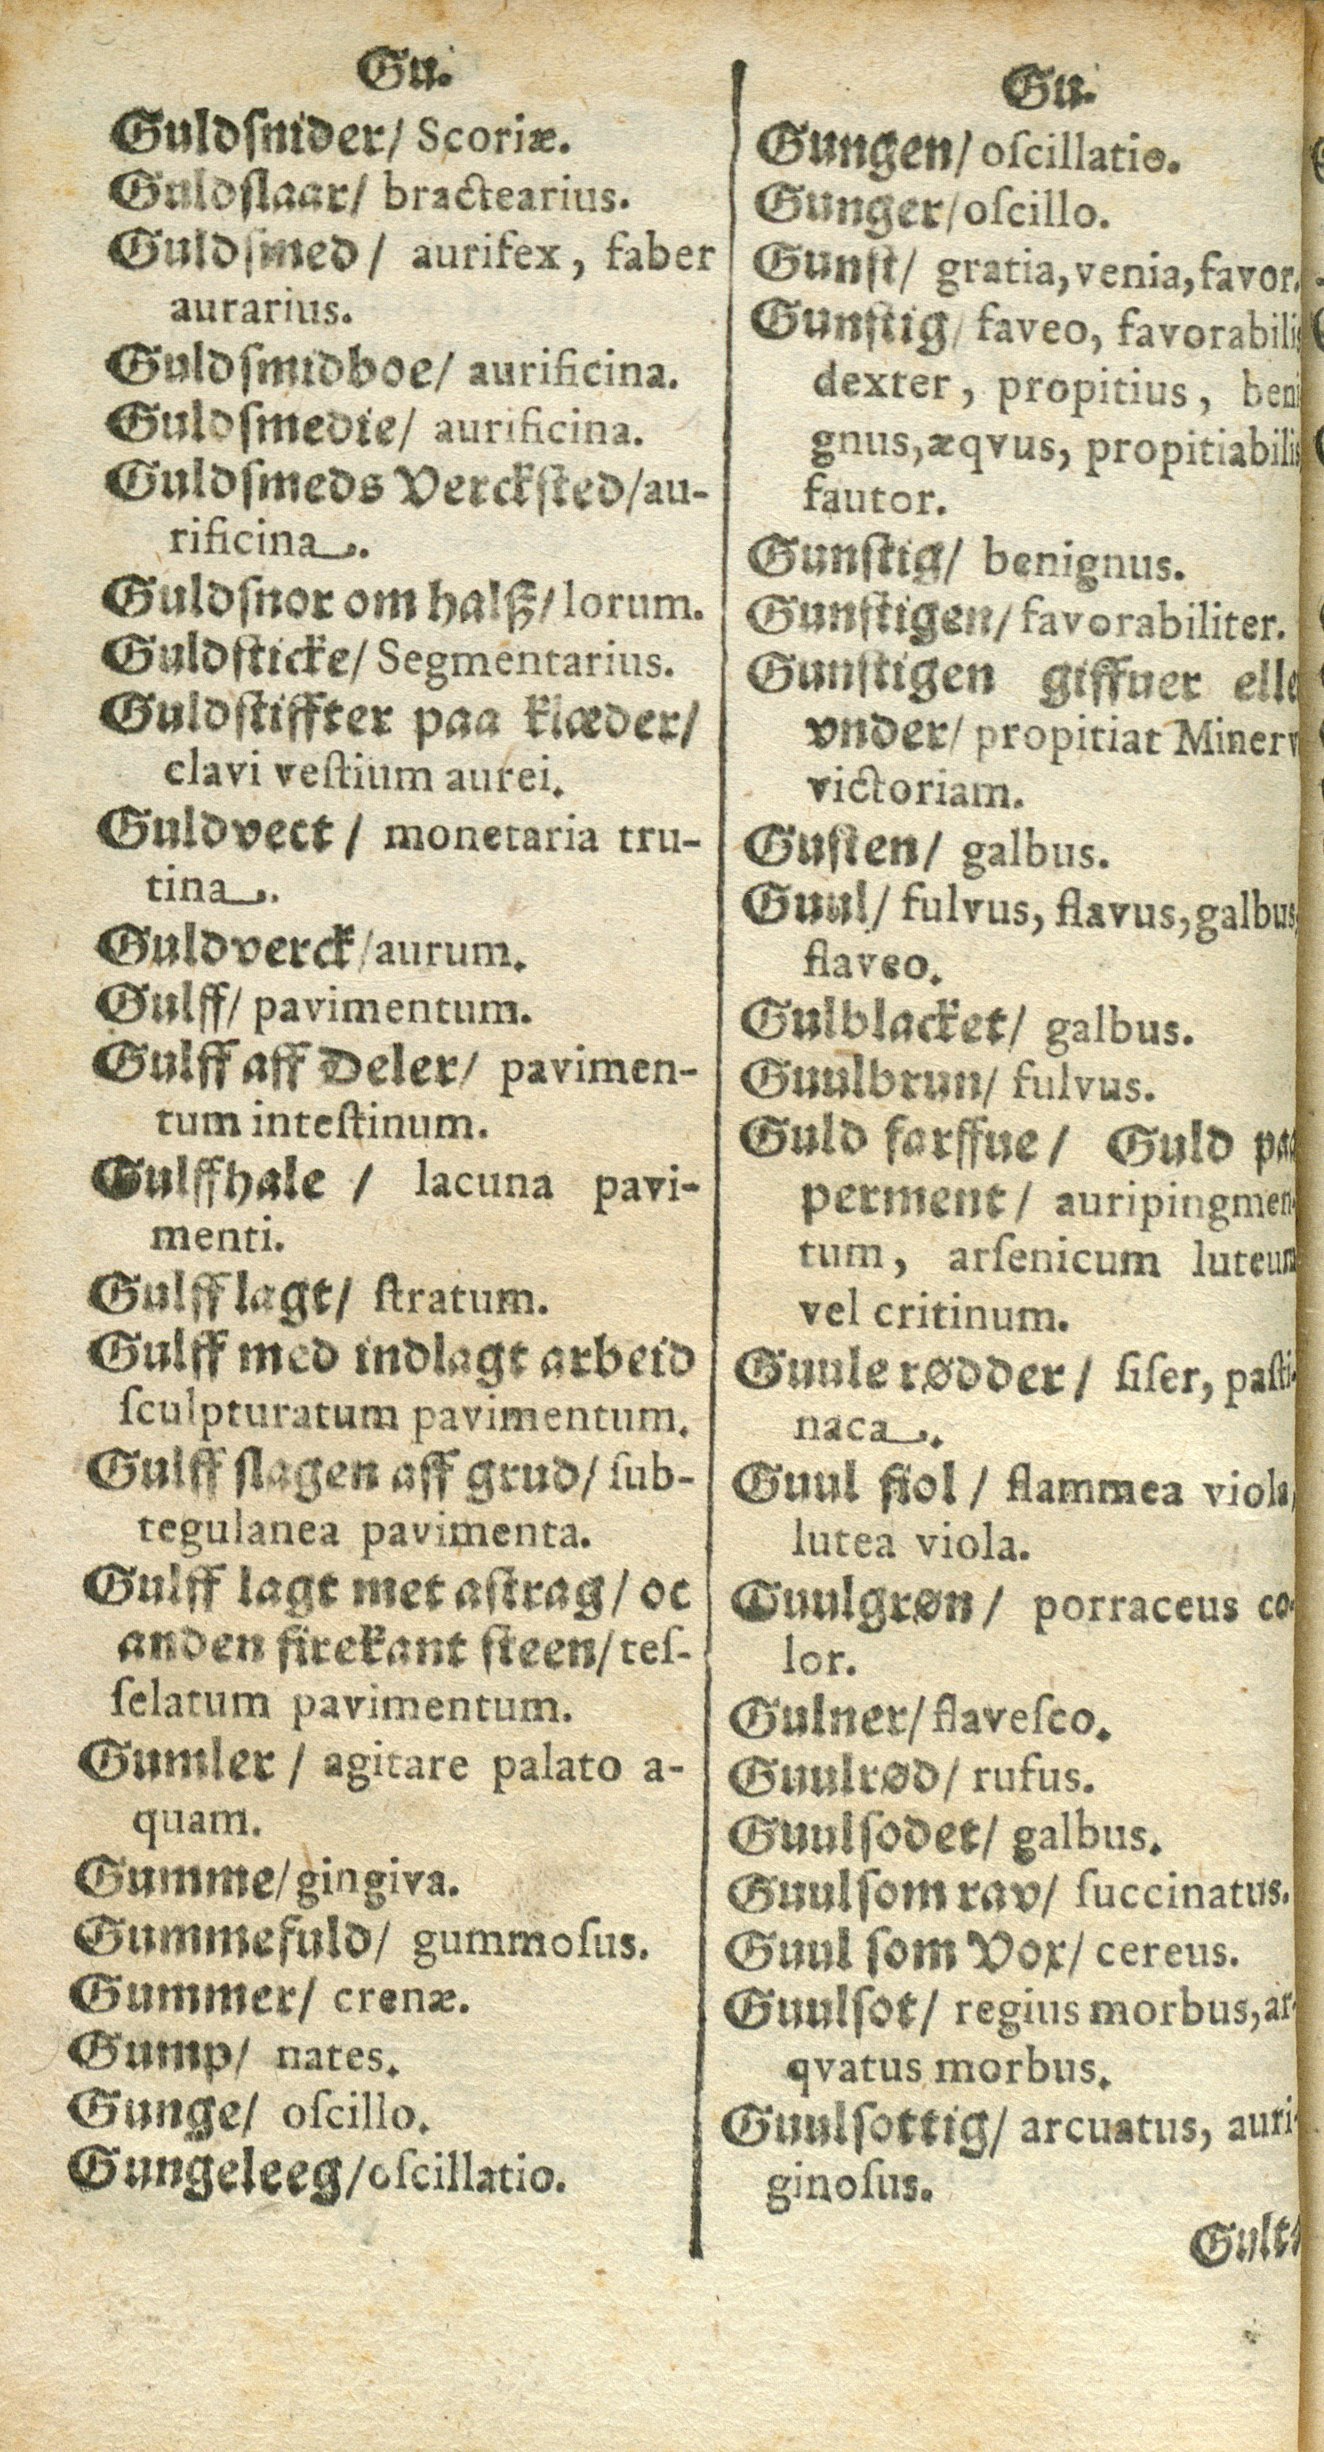 Gu.
Guldſnider/ Scoriæ.
Guldſlaar/ bractearius.
Guldſmed/ aurifex, faber
aurarius.
Guldſmidboe/ aurificina.
Guldſmedie/ aurificina.
Guldſmeds Verckſted/au-
rificina.
Guldſnor om halß/ lorum.
Guldſticke/ Segmentarius.
Guldſtiffter paa klæder/
clavi veſtium aurei.
Guldvect / monetaria tru-
tina.
Guldverck/aurum.
Gulff/ pavimentum.
Gulff aff Deler/ pavimen-
tum inteſtinum.
Gulffhale / lacuna pavi-
menti.
Gulff lagt/ ſtratum.
Gulff med indlagt arbeid
ſculpturatum pavimentum.
Gulff ſlagen aff grud/ ſub-
tegulanea pavimenta.
Gulff lagt met aſtrag/ oc
anden firekant ſteen/ teſ-
ſelatum pavimentum.
Gumler / agitare palato a-
quam.
Gumme/gingiva.
Gummefuld/ gummoſus.
Gummer/ crenæ.
Gump/ nates.
Gunge/ oſcillo.
Gungeleeg/oſcillatio.
Gu.
Gungen/ oſcillatio.
Gunger/oſcillo.
Gunſt/ gratia, venia, favor.
Gunſtig/ faveo, favorabilis
dexter, propitius, beni
gnus, æqvus, propitiabilis
fautor.
Gunſtig/ benignus.
Gunſtigen/ favorabiliter.
Gunſtigen giffuer elle
vnder/ propitiat Minerv
victoriam.
Guſten/ galbus.
Guul/ fulvus, flavus, galbus,
flaveo.
Gulblacket/ galbus.
Guulbrun/ fulvus.
Guld farffue/ Guld paa
perment/ auripingmen-
tum, arſenicum luteum
vel critinum.
Guule rødder/ ſiſer, paſti-
naca.
Guul fiol / flammea viola,
lutea viola.
Guulgrøn/ porraceus co-
lor.
Gulner/ flaveſco.
Guulrød/ rufus.
Guulſodet/ galbus.
Guulſom rav/ ſuccinatus.
Guul ſom Vox/ cereus.
Guulſot/ regius morbus, ar-
qvatus morbus.
Guulſottig/ arcuatus, auri-
ginoſus.